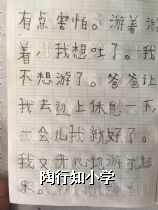 有点害怕。游着游
着,我想吐了。我
不想游了。爸爸让
我去边上休息一下
一会儿我就好了。
我又开心地游了起
来。
陶行知小学